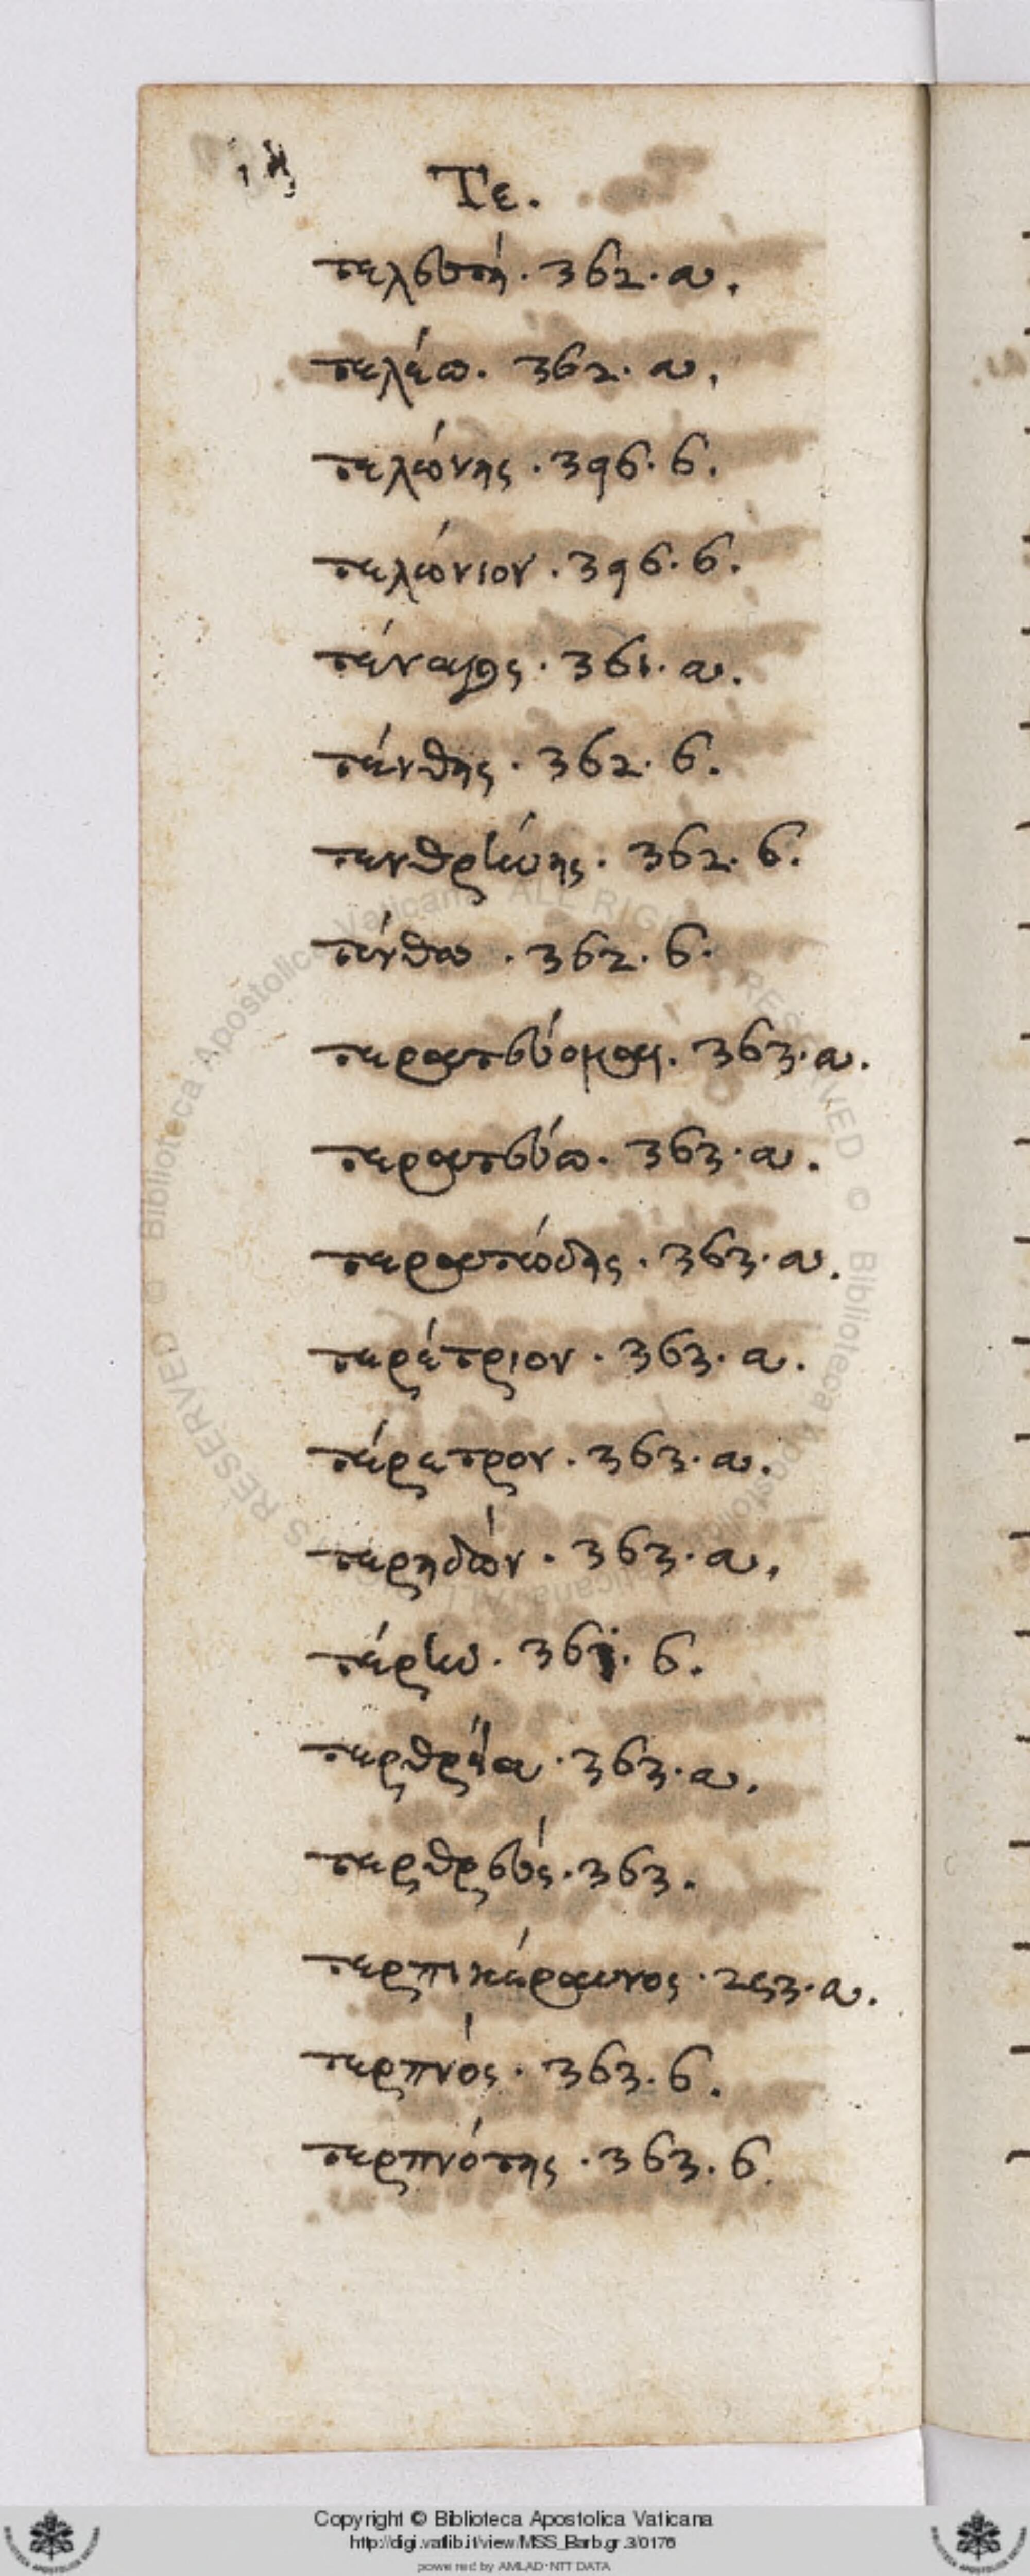 Τε.
τελευτή · 362 · α.
τελέω. 362 · α.
τελώνης · 396 · β.
τελώνιον · 396 · β.
τέναγος · 361 · α.
τένθης · 362 · β.
τενθρίνης · 362 · β.
τένθω · 362 · β.
τερατεύομαι. 363 · α.
τερατεύω. 363 · α.
τερατώδης · 363 · α.
τερέτριον · 363 · α.
τέρετρον · 363 · α.
τερηδών · 363 · α.
β.
τερθρεία · 363 · α.
τερθρεύς · 363.
τερπικέραυνος · α.
τερπνός · 363 · β.
τερπνότης · 363 · β.
Copyright © Biblioteca Apostolica Vaticana
http://digi.vatlib.it/view/MSS_Barb.gr.3/0176
powered by AMLAD-NTT DATA